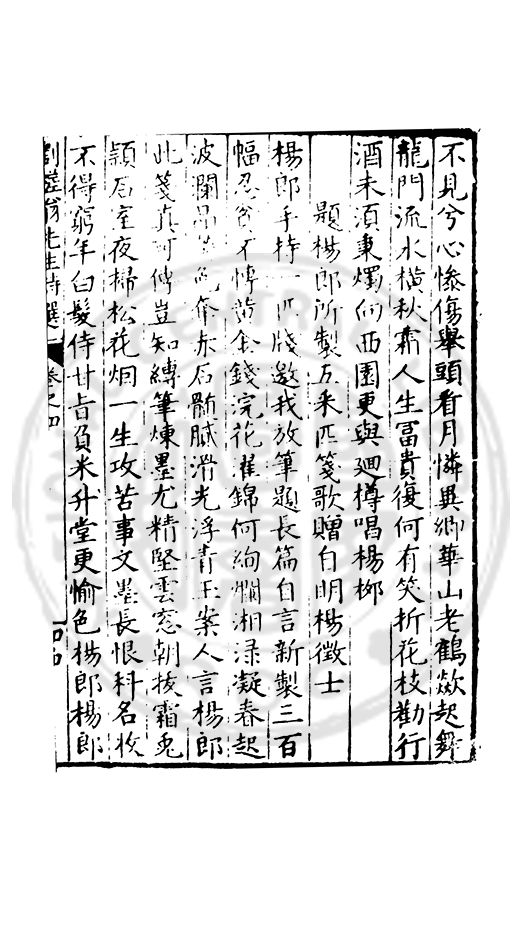 不見兮心慘傷舉頭看月憐異鄉華山老鶴欻起舞
龍門流水橫秋霜人生冨貴復何有笑折花枝勸行
酒未須秉燭向西園更與廻樽唱楊栁
題楊郎所製五釆匹箋歌贈白明楊徵士
楊郎手持一匹牋邀我放筆題長篇自言新製三百
幅忍貧不愽黃金錢浣花濯錦何絢爛湘淥凝春起
波瀾昂光赤石骱膩滑光浮青玉案人言楊郎
此箋真可傳豈知縛筆煉墨尤精堅雲窓朝拔霜兎
頴石室夜掃松花烟一生攻苦事文墨長恨科名收
不得窮年白髮侍甘旨負米升堂更愉色楊郎楊郎
劉蓝翁先生詩選 卷之四